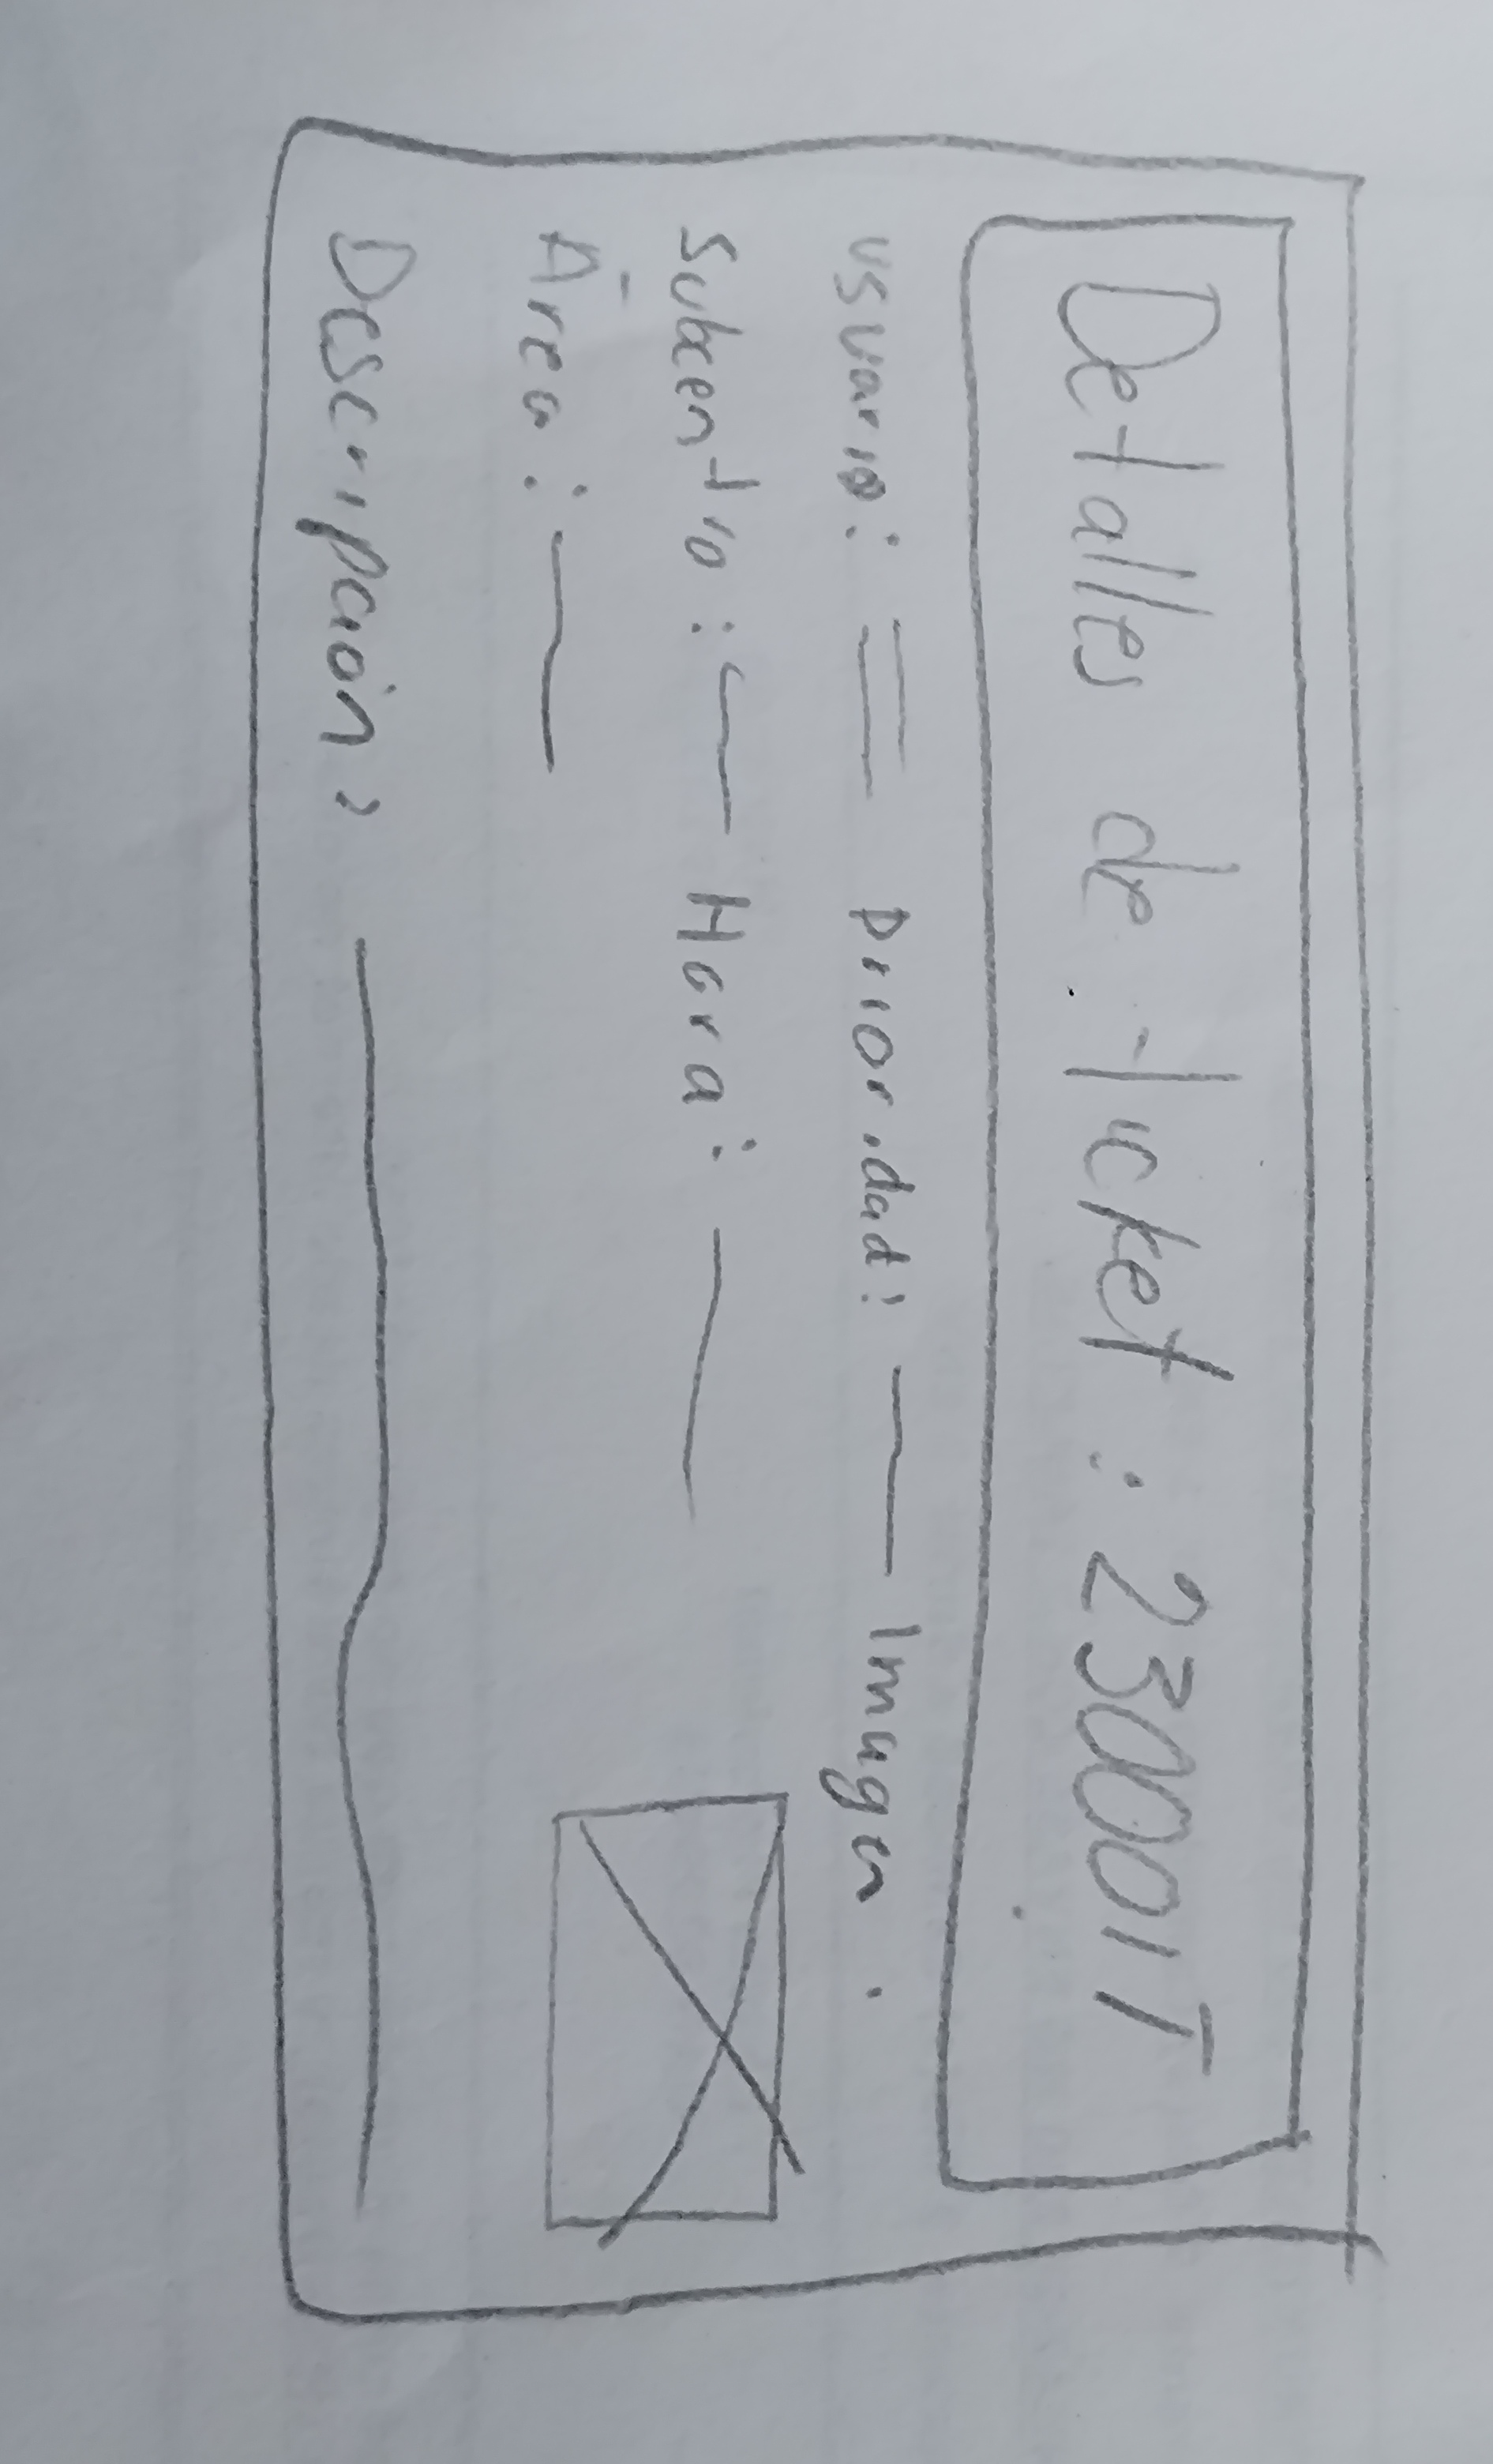 Detalles de ticket : 230001T
usuario: Prioridad: Imagen
Subcentro : Hora:
Área :
Descripción: